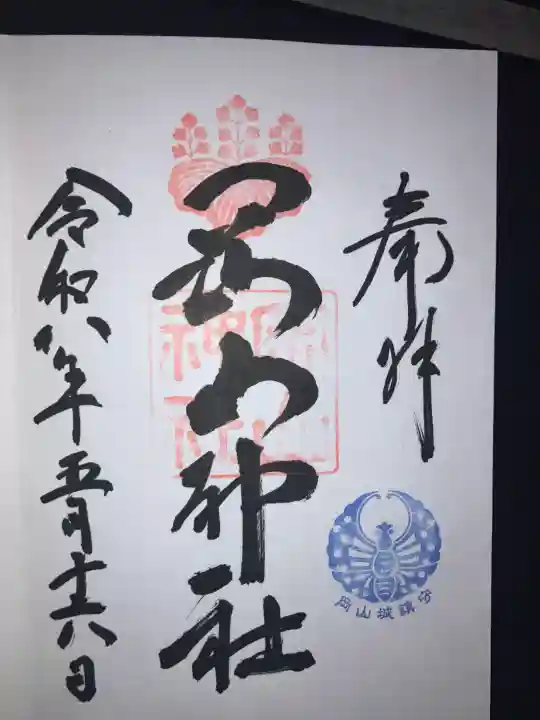 奉拝
岡山神社
岡山神社
岡山城鎮守
令和八年五月十六日